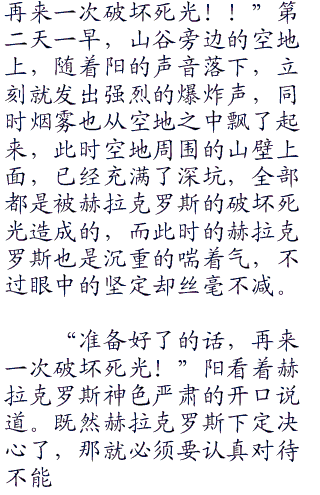 再来一次破坏死光！！”第
二天一早，山谷旁边的空地
上，随着阳的声音落下，立
刻就发出强烈的爆炸声，同
时烟雾也从空地之中飘了起
来，此时空地周围的山壁上
面，已经充满了深坑，全部
都是被赫拉克罗斯的破坏死
光造成的，而此时的赫拉克
罗斯也是沉重的喘着气，不
过眼中的坚定却丝毫不减。
“准备好了的话，再来
一次破坏死光！”阳看着赫
拉克罗斯神色严肃的开口说
道。既然赫拉克罗斯下定决
心了，那就必须要认真对待
不能